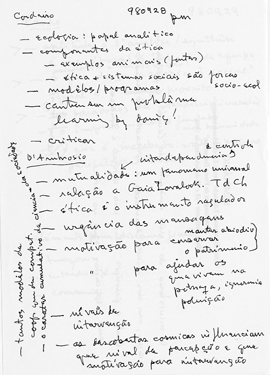 Cordeiro 980928 pm
— ecologia: papel analítico
— componentes da ética
— exemplos animais (fontes)
— ética e sistemas sociais são forças
socio-ecol
— modelos/programas
— problema
learning by doing!
— criticar
D'Ambrosio
& controle
— mutualidade: um fenomeno universal
— relação a Gaia Lovelock. T d Ch
— ética é o instrumento regulador
— urgência das mensagens
— motivação para conservar
manter abiodiv
o patrimonio
" para ajudar os
que vivem na
pobreza, ignorancia
poluição
— níveis de
intervenção
— as descobertas cosmicas influenciam
que nivel de percepção e que
motivação para intervenção
— tantos modelos de
coop. quanto compet.
— o carater cumulativo da ciencia e da sociedade